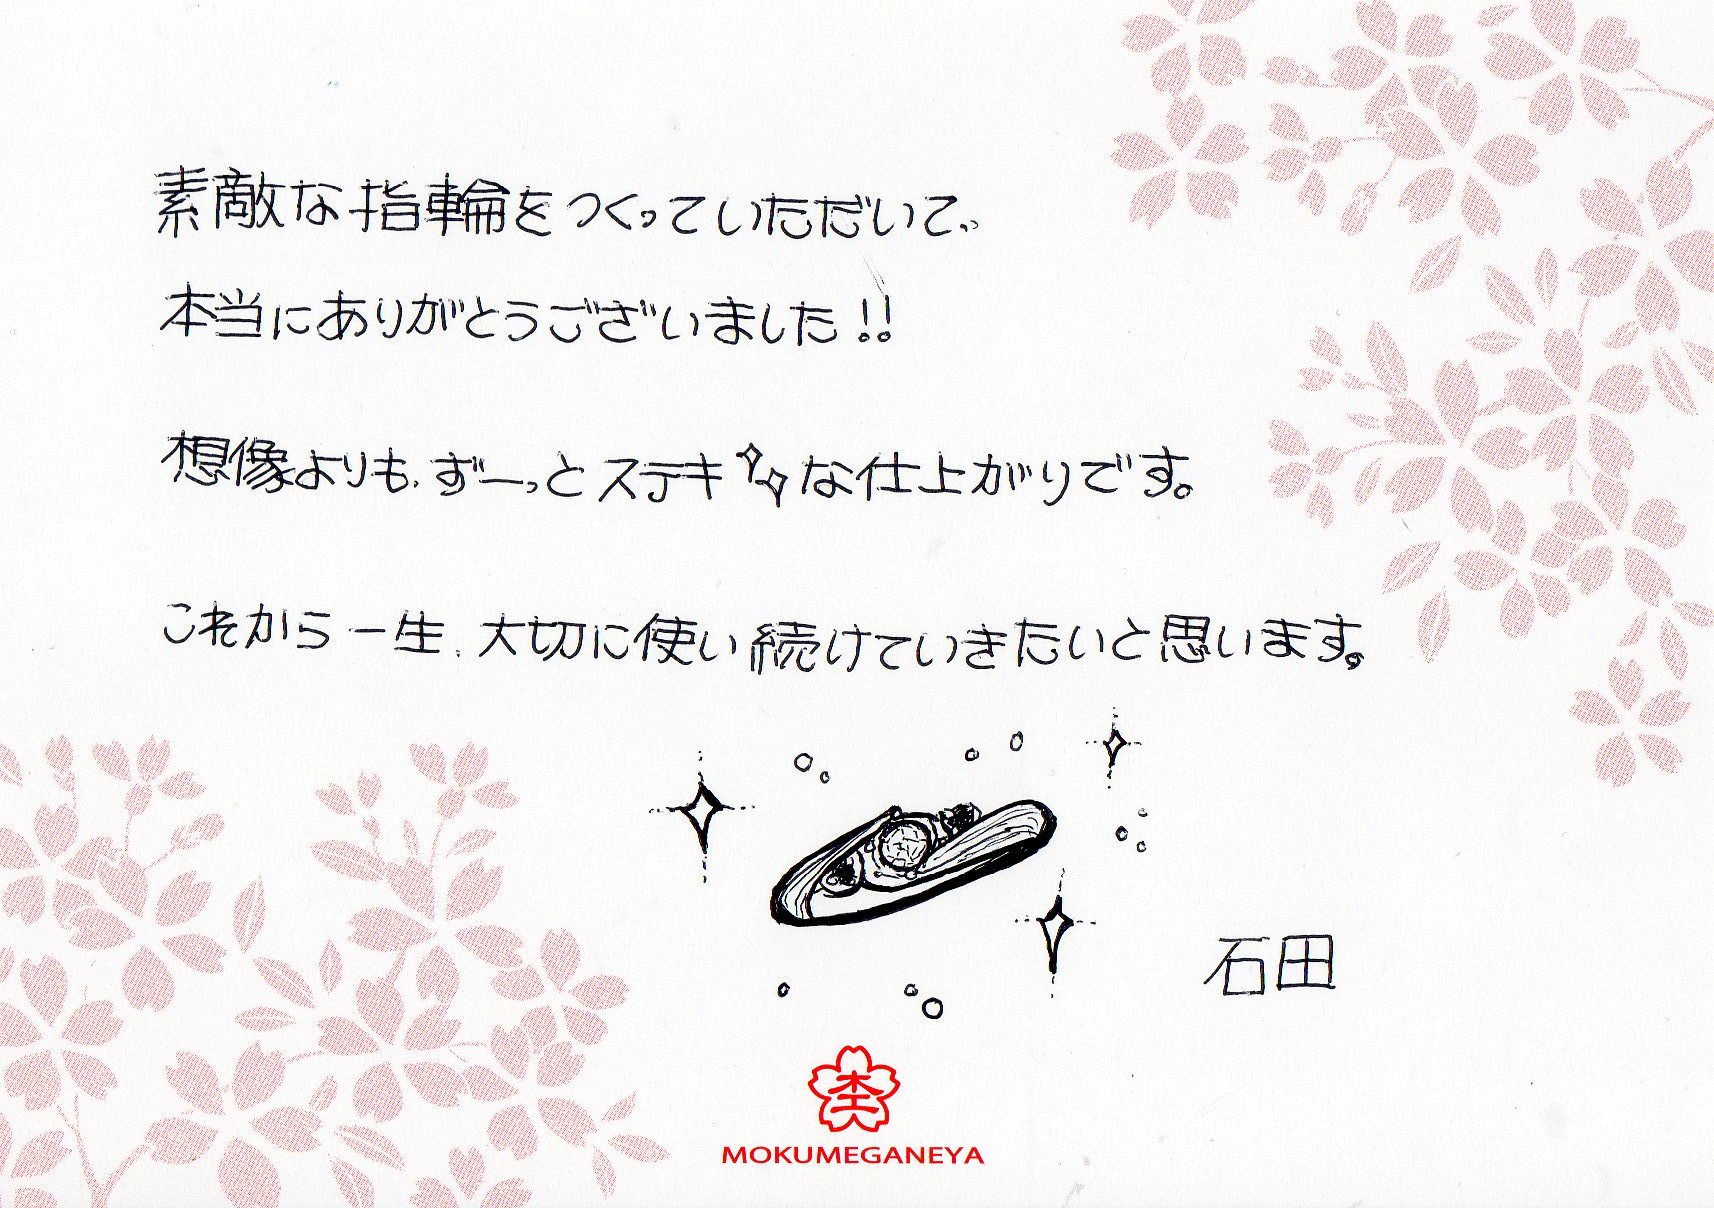 素敵な指輪をつくっていただいて、
本当にありがとうございました!!
想像よりも、ずーっとステキな仕上がりです。
これから一生、大切に使い続けていきたいと思います。
石田
MOKUMEGANEYA